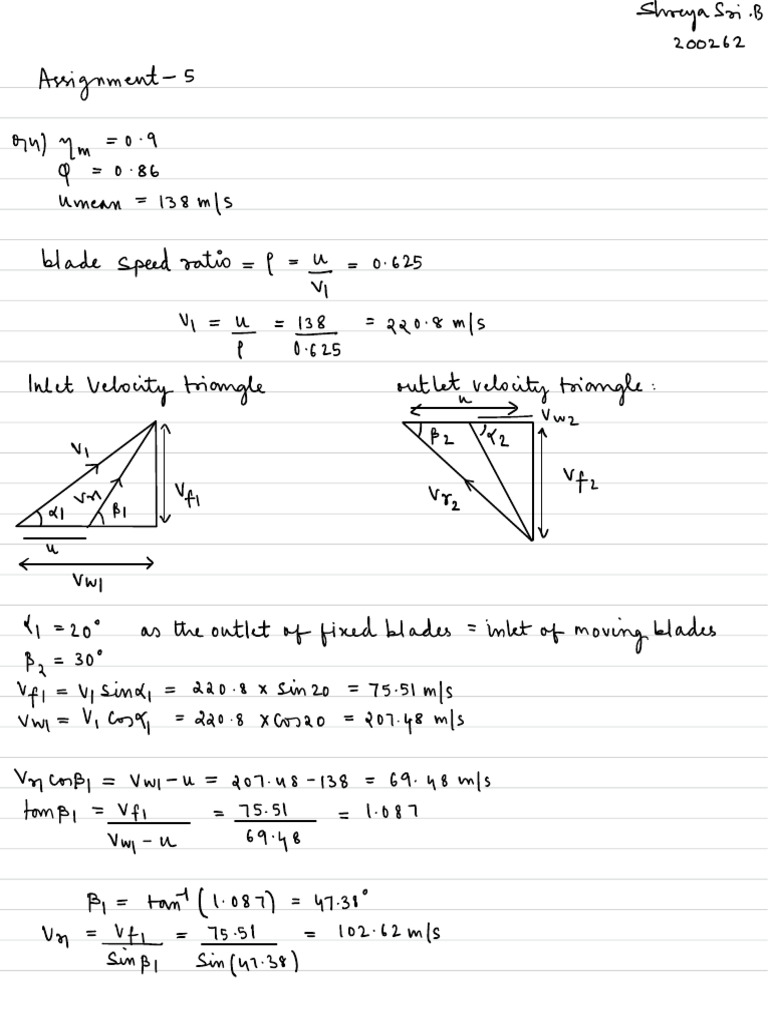 Shreya Sri .B
200262
Assignment - 5
Q4) ηm = 0.9
φ = 0.86
umean = 138 m/s
blade speed ratio = ρ = u/V1 = 0.625
V1 = u/ρ = 138/0.625 = 220.8 m/s
Inlet Velocity triangle
outlet velocity triangle:
V1
Vr1
Vf1
α1
β1
u
Vw1
u
Vw2
β2
α2
Vf2
Vr2
α1 = 20° as the outlet of fixed blades = inlet of moving blades
β2 = 30°
Vf1 = V1 sinα1 = 220.8 x sin20 = 75.51 m/s
Vw1 = V1 cosα1 = 220.8 x cos20 = 207.48 m/s
Vr1 cosβ1 = Vw1 - u = 207.48 - 138 = 69.48 m/s
tanβ1 = Vf1/(Vw1 - u) = 75.51/69.48 = 1.087
β1 = tan⁻¹(1.087) = 47.38°
Vr1 = Vf1/Sinβ1 = 75.51/Sin(47.38) = 102.62 m/s